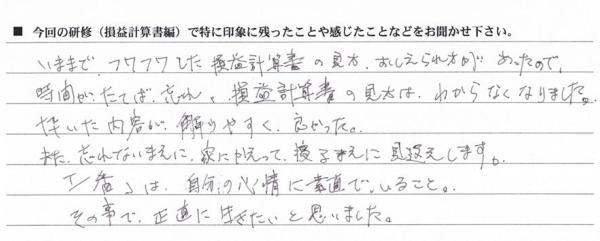 ■ 今回の研修(損益計算書編)で特に印象に残ったことや感じたことなどをお聞かせ下さい。
いままで、フワフワした損益計算書の見方、おしえられ方が あったので、
時間が、たてば、忘れ、損益計算書の見方は、わからなくなりました。
いた内容が、解りやすく、良かった。
また、忘れないまえに、家にかえって、寝るまえに 見改えします。
「一番」は、自分の心情に素直で、いること。
その事で、正直に 生きたい と思いました。